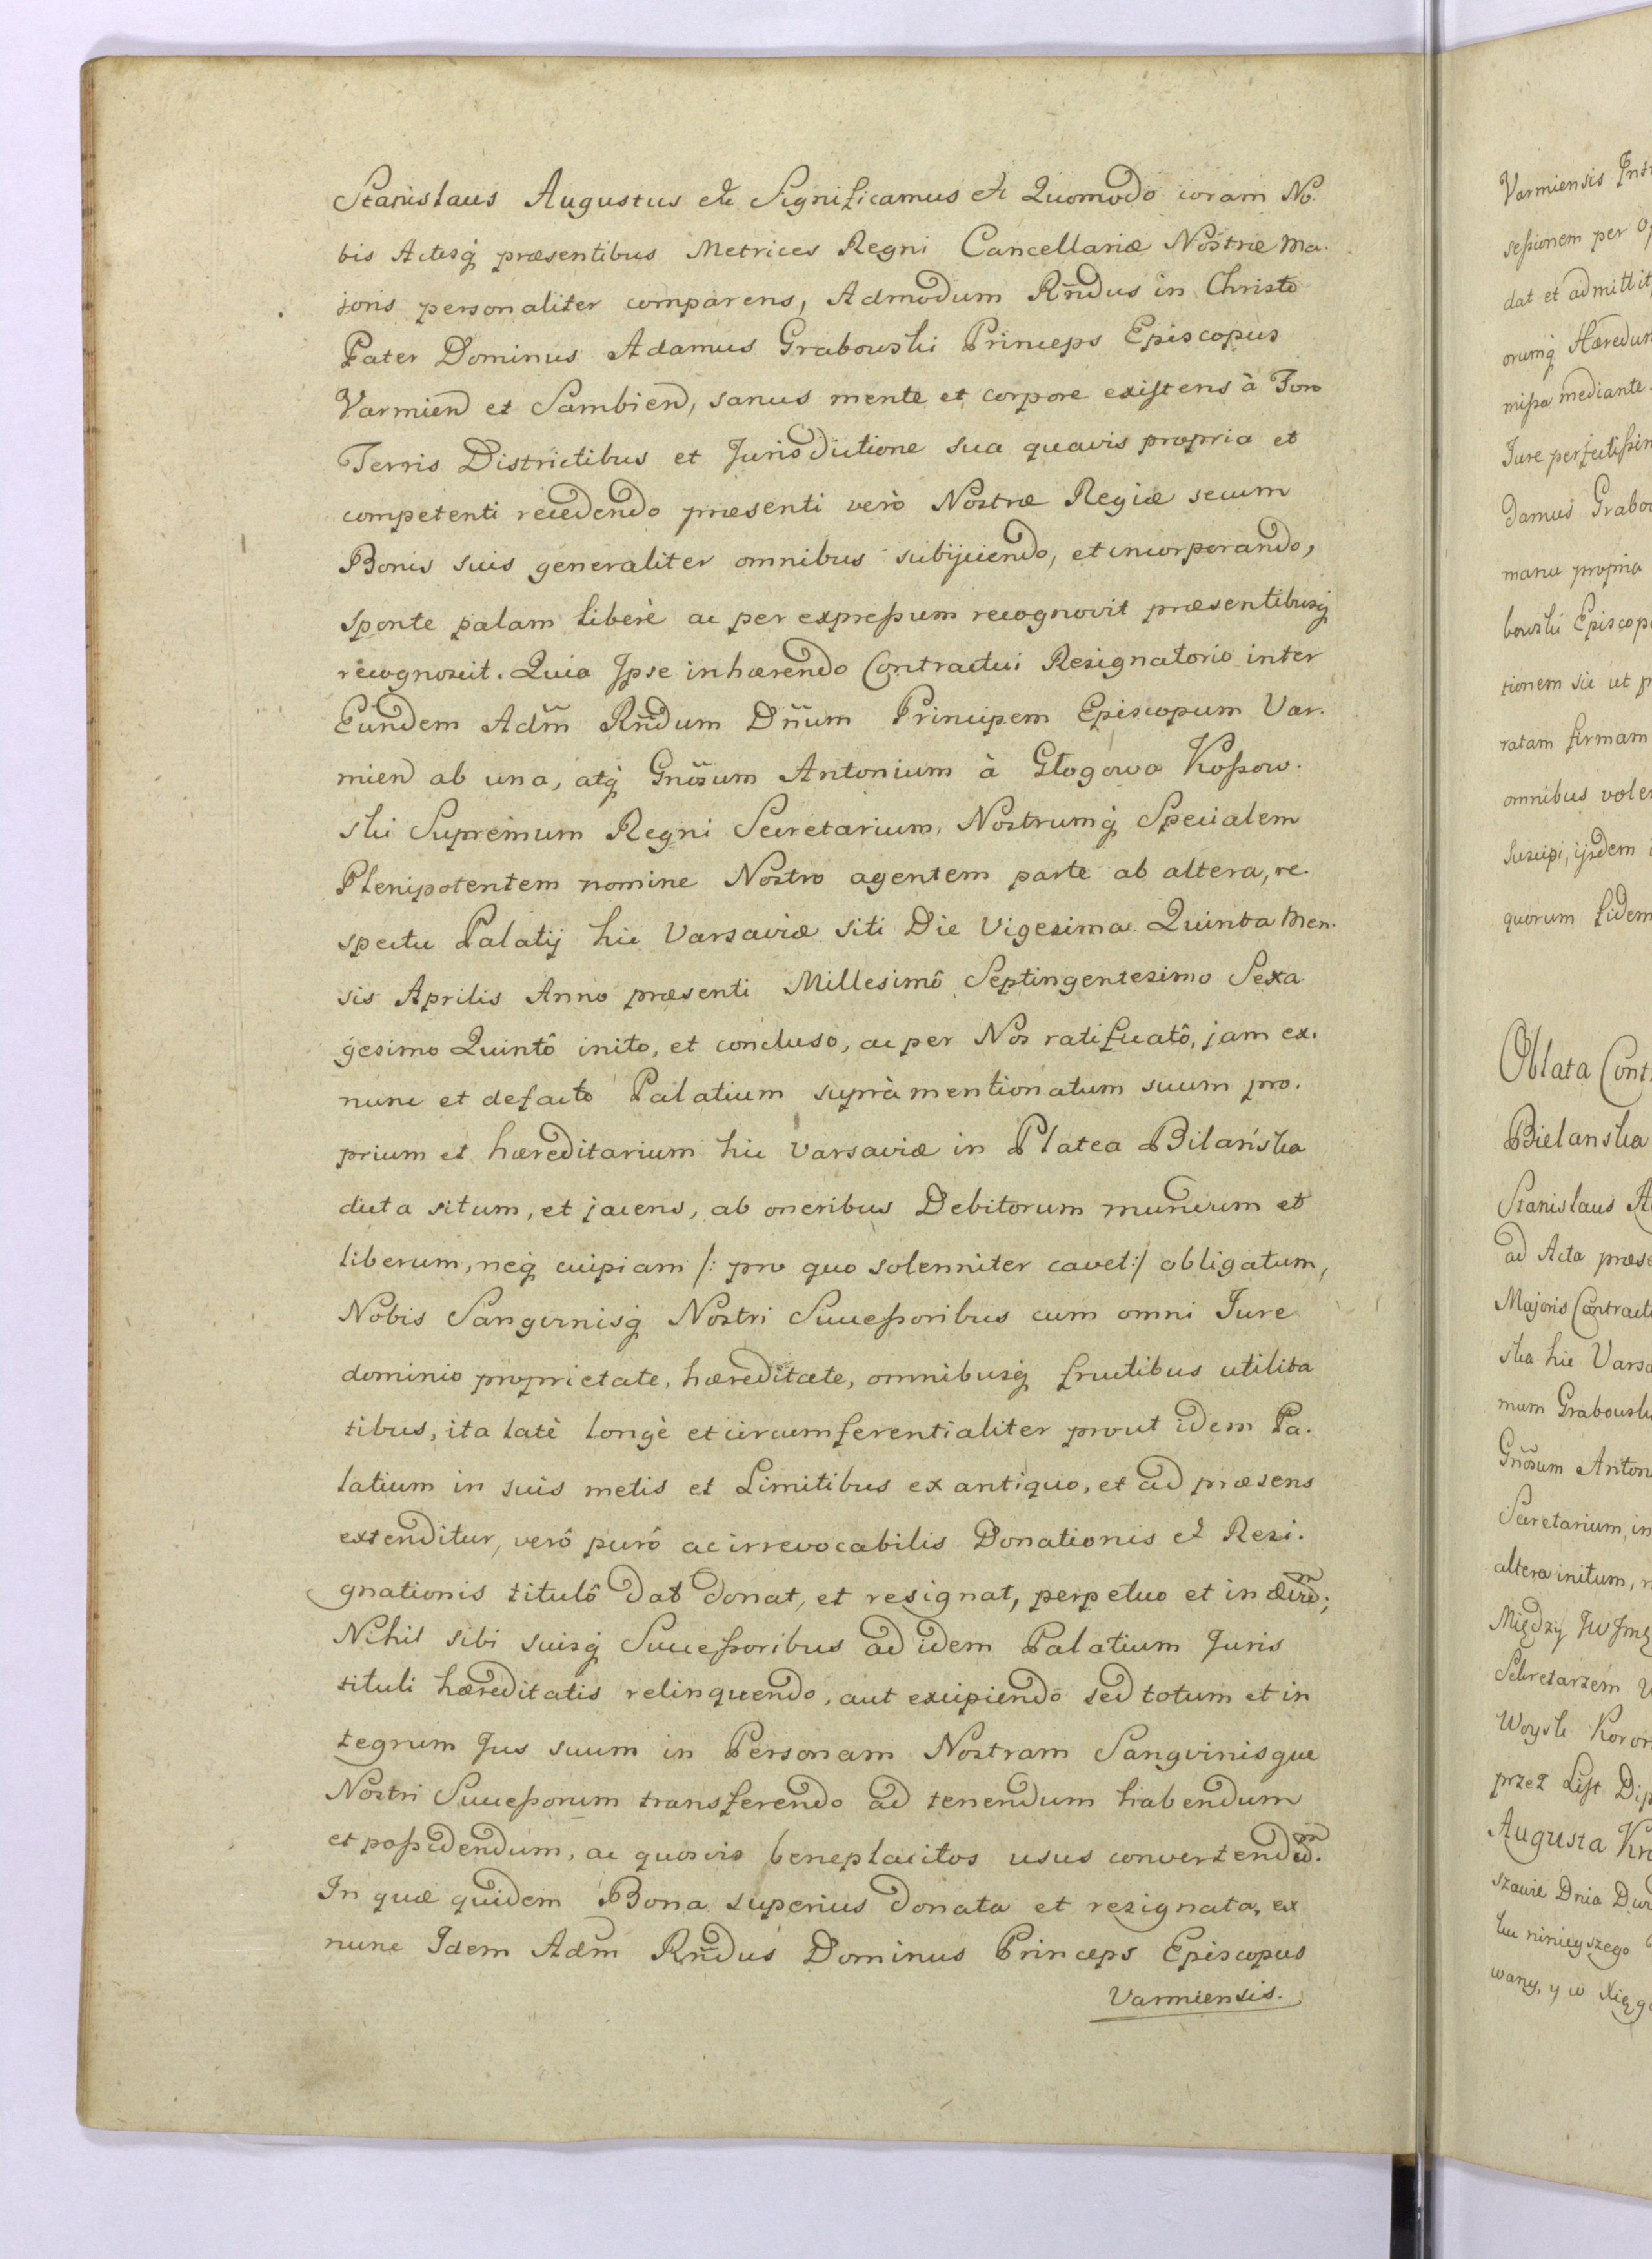 Stanislaus Augustus etc Significamus etc Quomodo coram No.
bis Actisq́ præsentibus Metrices Regni Cancellariæ Nostræ Ma.
joris personaliter comparens, Admodum Rñdus in Christo
Pater Dominus Adamus Grabowski Princeps Episcopus
Varmien et Sambien, sanus mente et corpore existens à Foro
Terris Districtibus et Jurisdictione sua quavis propria et
competenti recedendo præsenti verò Nostræ Regiæ secum
Bonis suis generaliter omnibus subijciendo, et incorporando,
sponte palam liberè ac per expreßum recognovit præsentibusq́
recognoscit. Quia Ipse inhærendo Contractui Resignatorio inter
Eundem Adm̃ Rñdum Dñum Principem Episcopum Var.
mien ab una, atq́ Gnõsum Antonium à Głogowa Koßow.
ski Supremum Regni Secretarium, Nostrumq́ Specialem
Plenipotentem nomine Nostro agentem parte ab altera, re.
spectu Palatij hic Varsaviæ siti Die Vigesima Quinta Men.
sis Aprilis Anno præsenti Millesimô Septingentesimo Sexa
gesimo Quintô inito, et concluso, ac per Nos ratificatô, jam ex.
nunc et defacto Palatium supràmentionatum suum pro.
prium et hæreditarium hic Varsaviæ in Platea Bilańska
dicta situm, et jacens, ab oneribus Debitorum mundum et
liberum, neq́ cuipiam /: pro quo solenniter cavet :/ obligatum,
Nobis Sangvinisq́ Nostri Succeßoribus cum omni Jure
dominio proprietate, hæreditate, omnibusq́ fructibus utilita
tibus, ita latè longè et circumferentialiter prout idem Pa.
latium in suis metis et Limitibus ex antiquo, et ad præsens
extenditur, verô purô ac irrevocabilis Donationis et Resi.
gnationis titulô dat donat, et resignat, perpetuo et in ævum;
Nihil sibi suisq́ Succeßoribus ad idem Palatium Juris
tituli hæreditatis relinquendo, aut excipiendo sed totum et in
tegrum Jus suum in Personam Nostram Sangvinisque
Nostri Succeßorum transferendo ad tenendum habendum
et poßidendum, ac quosvis beneplacitos usus convertendum.
In quæ quidem Bona superius donata et resignata, ex
nunc Idem Adm̃ Rñdus Dominus Princeps Episcopus
Varmiensis.
Varmiensis
seßionem per
dat et admittit
orumq́
mißa mediante
Jure
damus
manu propria
bowski
tionem sic ut
ratam firmam
omnibus
Suscipi, ijsdem
quorum fidem
Oblata
Bielanska
Stanislaus
ad Acta
Majoris
ska hic
mum
Gnõsum
Secretarium, in
altera initum,
Między
Sekretarzem
Woysk
przez List
Augusta
szawie Dnia
ku ninieyszego
wany, y w